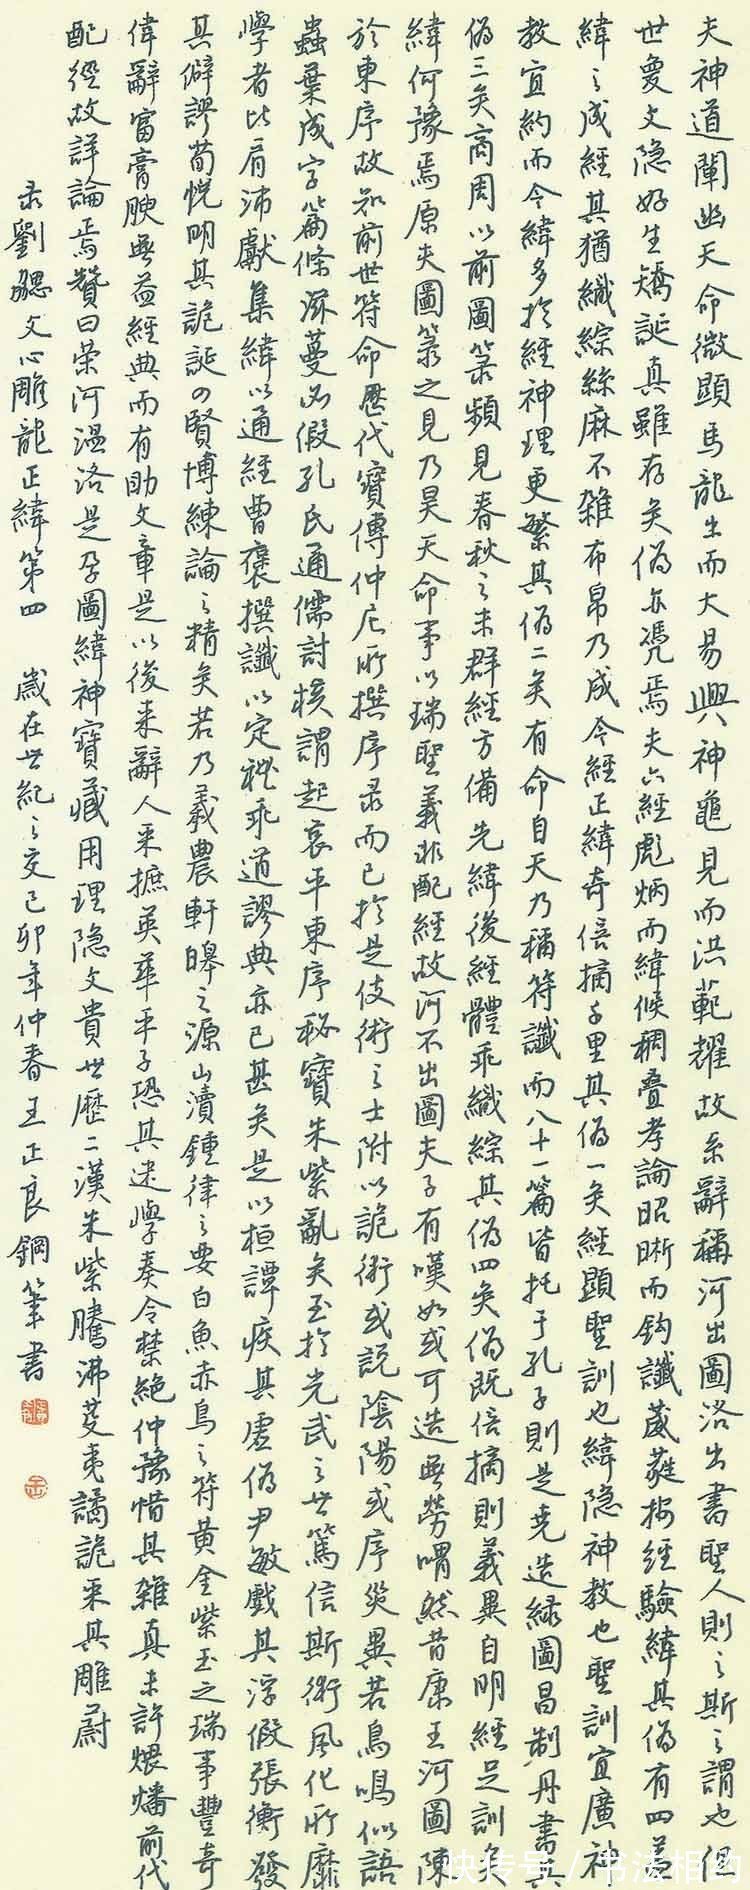 夫神道闡幽天命微顯馬龍出而大易興神龜見而洪範耀故系辭稱河出圖洛出書聖人則之斯之謂也但
世夐文隐好生矯誕真雖存矣偽亦凭焉夫六經彪炳而緯候稠叠孝論昭晰而鈎讖葳蕤按經驗緯其偽有四蓋
緯之成經其猶織綜絲麻不雜布帛乃成今經正緯奇倍摘千里其偽一矣經顯聖訓也緯隐神教也聖訓宜廣神
教宜約而今緯多於經神理更繁其偽二矣有命自天乃稱符讖而八十一篇皆托于孔子則是堯造緑圖昌制丹書其
偽三矣商周以前圖箓頻見春秋之末群經方備先緯後經體乖織綜其偽四矣偽既倍摘則義異自明經足訓矣
緯何豫焉原夫圖箓之見乃昊天命事以瑞聖義非配經故河不出圖夫子有嘆如或可造無勞喟然昔康王河圖陳
於東序故知前世符命歷代寶傳仲尼所撰序录而已於是伎術之士附以詭術或説陰陽或序災異若鳥鳴似語
蟲葉成字篇條滋蔓必假孔氏通儒討核謂起哀平東序秘寶朱紫亂矣至於光武之世篤信斯術風化所靡
學者比肩沛獻集緯以通經曹褒撰讖以定禮乖道謬典亦已甚矣是以桓譚疾其虚偽尹敏戲其浮假張衡發
其僻謬荀悦明其詭誕四賢博練論之精矣若乃義農軒皞之源山瀆鍾律之要白魚赤烏之符黄金紫玉之瑞事豐奇
偉辭富膏腴無益經典而有助文章是以後来辭人采摭英華平子恐其迷學奏令禁絶仲豫惜其雜真未許煨燔前代
配經故詳論焉贊曰荣河温洛是孕圖緯神寶藏用理隐文貴世歷二漢朱紫騰沸芟夷譎詭采其雕蔚
录劉勰文心雕龍正緯第四 歲在世紀之交己卯年仲春王正良鋼筆書
快传号/书法相约